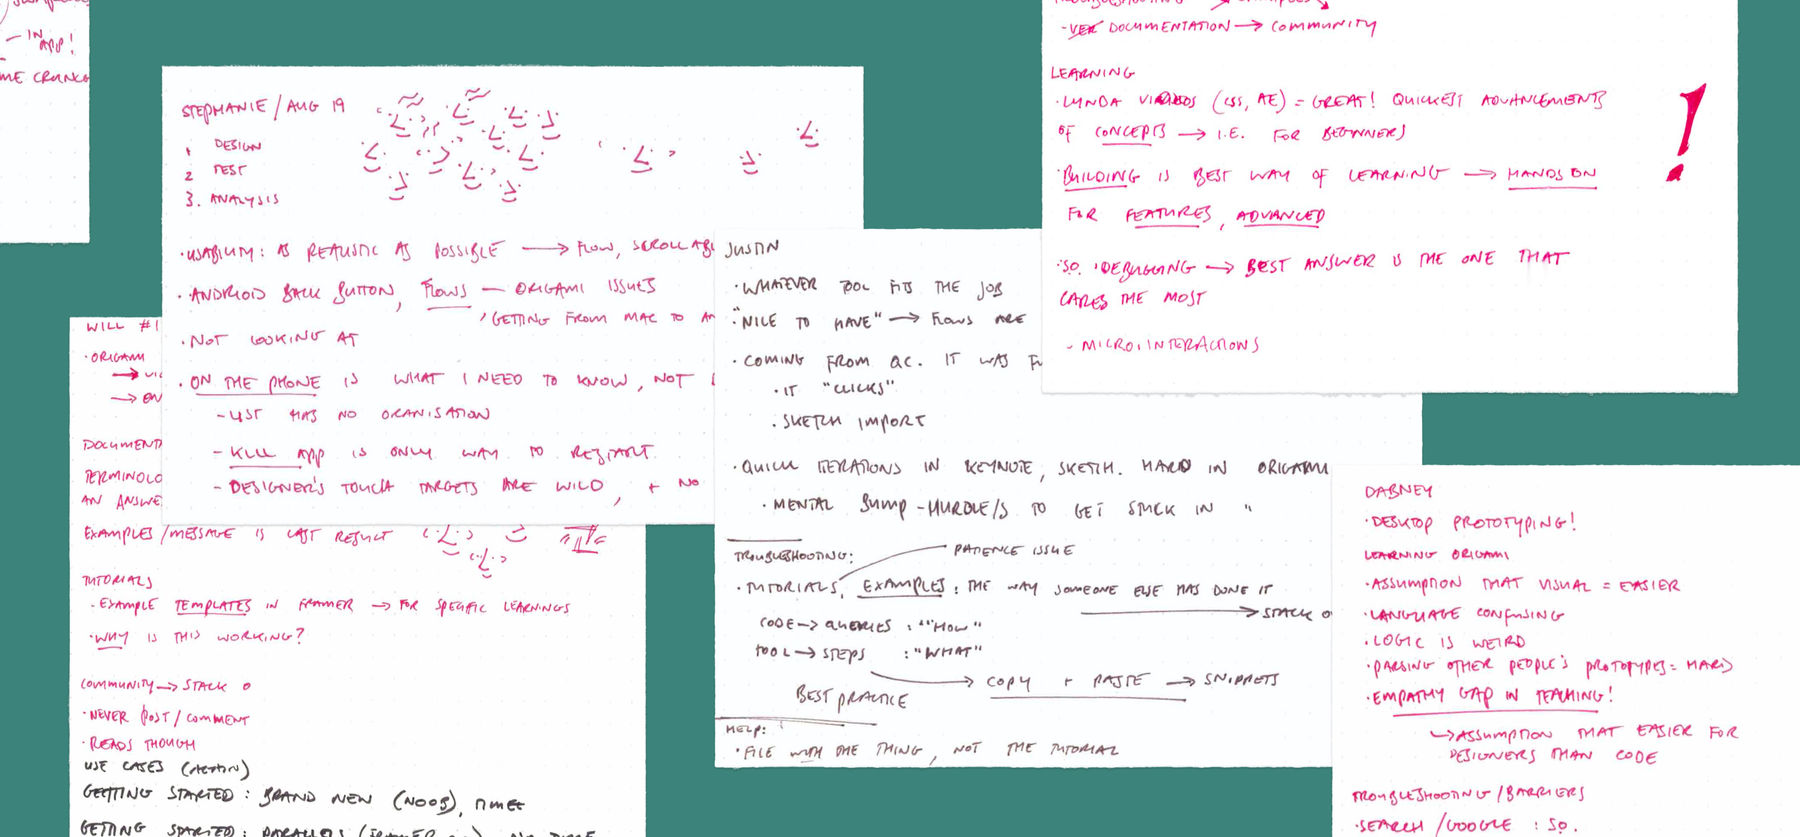 - IN APP!
ME CRUNCH
STEPHANIE / AUG 19
1 DESIGN
2 TEST
3. ANALYSIS
· USABILITY: AS REALISTIC AS POSSIBLE → FLOW, SCROLLAB
· ANDROID BACK BUTTON, FLOWS - ORIGAMI ISSUES
, GETTING FROM MAC TO AN
· NOT LOOKING AT
· ON THE PHONE IS WHAT I NEED TO KNOW, NOT
- LIST HAS NO ORGANISATION
- KILL APP IS ONLY WAY TO RESTART
- DESIGNER'S TOUCH TARGETS ARE WILD, + NO
WILL #1
· ORIGAMI
→ VI
→ EN
DOCUMENTA
TERMINOLO
AN ANSWE
EXAMPLES/MESSAGE IS LAST RESULT
TUTORIALS
· EXAMPLE TEMPLATES IN FRAMER → FOR SPECIFIC LEARNINGS
· WHY IS THIS WORKING?
COMMUNITY → STACK O
· NEVER POST / COMMENT
· READS THOUGH
USE CASES (ACTION)
GETTING STARTED: BRAND NEW (NOOB), TIMEE
GETTING STARTED: PARALLELS
JUSTIN
· WHATEVER TOOL FITS THE JOB
· "NICE TO HAVE" → FLOWS ARE
· COMING FROM QC. IT WAS FU
· IT "CLICKS"
· SKETCH IMPORT
· QUICK ITERATIONS IN KEYNOTE, SKETCH. HARD IN ORIGAMI
· MENTAL BUMP - HURDLE/S TO GET STUCK IN "
TROUBLESHOOTING:
PATIENCE ISSUE
· TUTORIALS, EXAMPLES: THE WAY SOMEONE ELSE HAS DONE IT
→ STACK O
CODE → QUERIES : "HOW"
TOOL → STEPS : "WHAT"
→ COPY + PASTE → SNIPPETS
BEST PRACTICE
HELP:
· FILE WITH THE THING, NOT THE TUTORIAL
TROUBLESHOOTING → EXAMPLES
- VER DOCUMENTATION → COMMUNITY
LEARNING
· LYNDA VIDEOS (CSS, AE) = GREAT! QUICKEST ADVANCEMENTS
OF CONCEPTS → I.E. FOR BEGINNERS
· BUILDING IS BEST WAY OF LEARNING → HANDS ON
FOR FEATURES, ADVANCED
!
· SO. DEBUGGING → BEST ANSWER IS THE ONE THAT
CARES THE MOST
- MICRO.INTERACTIONS
DABNEY
· DESKTOP PROTOTYPING!
LEARNING ORIGAMI
· ASSUMPTION THAT VISUAL = EASIER
· LANGUAGE CONFUSING
· LOGIC IS WEIRD
· PARSING OTHER PEOPLE'S PROTOTYPES = HARD
· EMPATHY GAP IN TEACHING!
↳ ASSUMPTION THAT EASIER FOR
DESIGNERS THAN CODE
TROUBLESHOOTING / BARRIERS
· SEARCH / GOOGLE : SO.